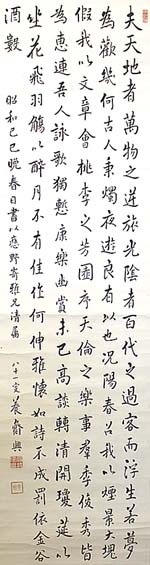 夫天地者萬物之逆旅光陰者百代之過客而浮生若夢
為歡幾何古人秉燭夜遊良有以也況陽春召我以煙景大塊
假我以文章會桃李之芳園序天倫之樂事羣季俊秀皆
為惠連吾人詠歌獨慙康樂幽賞未已高談轉清開瓊筵以
坐花飛羽觴以醉月不有佳作何伸雅懷如詩不成罰依金谷
酒數
昭和己巳晚春日書以應野寄雅兄清屬
八十一叟